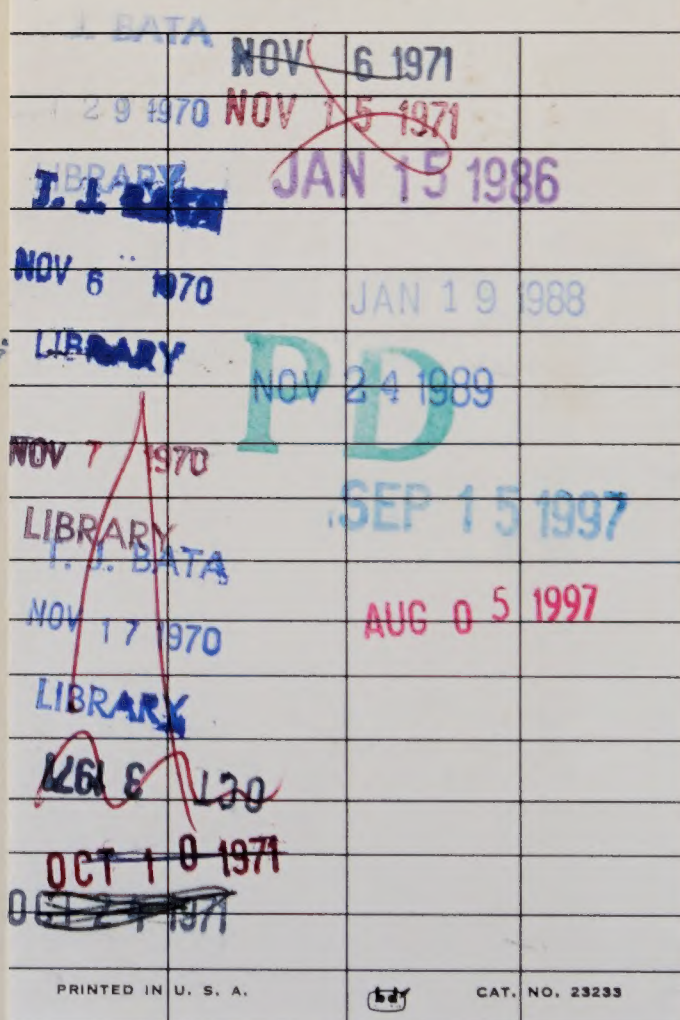 J. BATA
29 1970
LIBRARY
T. J.
NOV 6 1970
LIBRARY
NOV 7 1970
LIBRARY
T. J. BATA
NOV 17 1970
LIBRARY
OCT 3 1971
OCT 10 1971
OCT 1971
NOV 6 1971
NOV 15 1971
JAN 15 1986
JAN 19 1988
PD
NOV 24 1989
SEP 15 1997
AUG 05 1997
PRINTED IN U. S. A.
bdr
CAT. NO. 23233